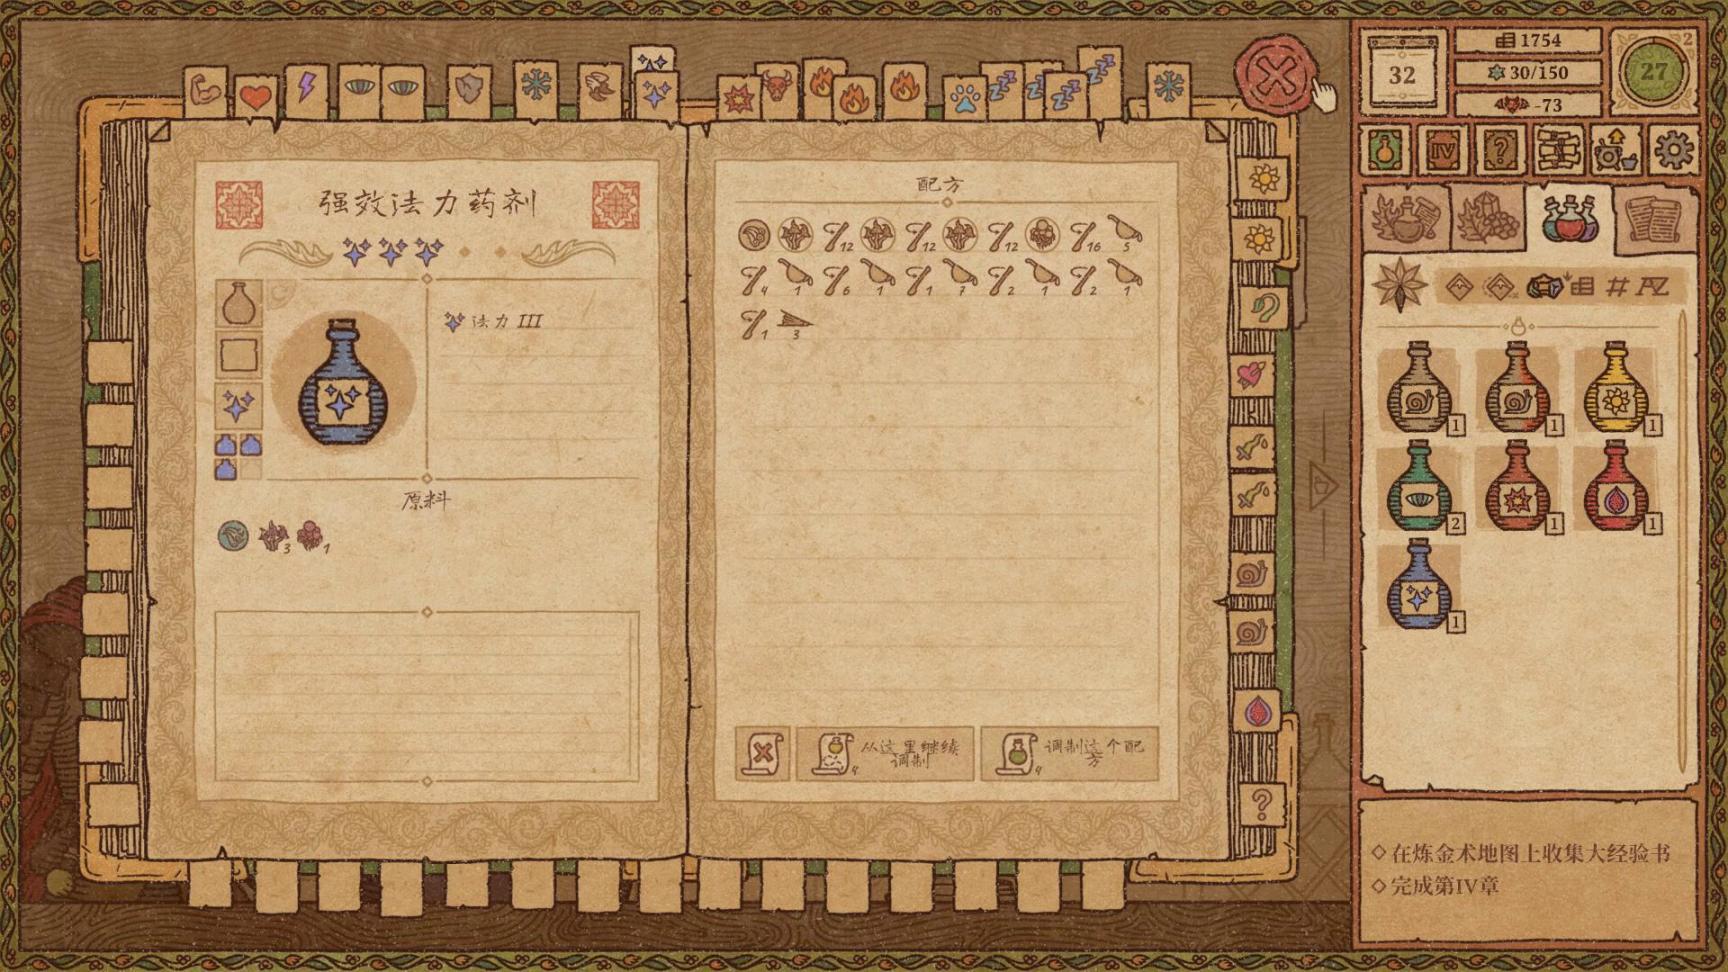 强效法力药剂
法力 III
原料
3 1
配方
12 12 12 16 5
4 1 6 1 1 7 2 1 2 1
1 3
4 从这里继续
调制
4 调制这个配
方
32
1754
30/150
-73
27
2
IV
?
# AZ
1 1 1
2 1 1
1
?
◇在炼金术地图上收集大经验书
◇完成第IV章